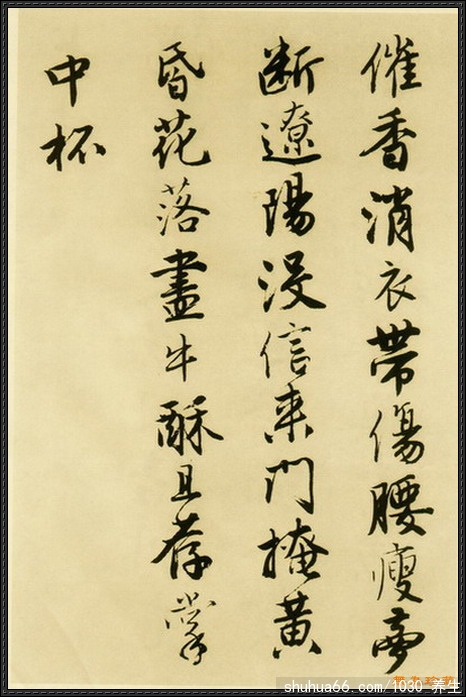 催香消衣帶傷腰瘦夢
断遼陽没信来門掩黄
昏花落盡牛酥且荐掌
中杯
shuhua66.com/1030-养生